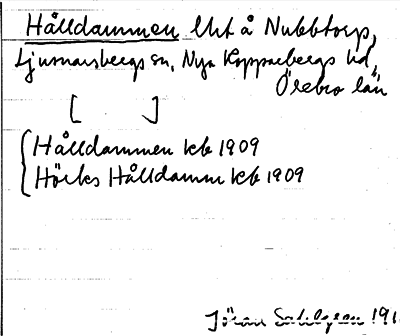 Hålldammen lht å Nubbtorp,
Ljusnarsbergs sn, Nya Kopparbergs bd,
Örebro län
[ ]
Hålldammen kb 1909
Hörks Hålldamm kb 1909
Jöran Sahlgren 191